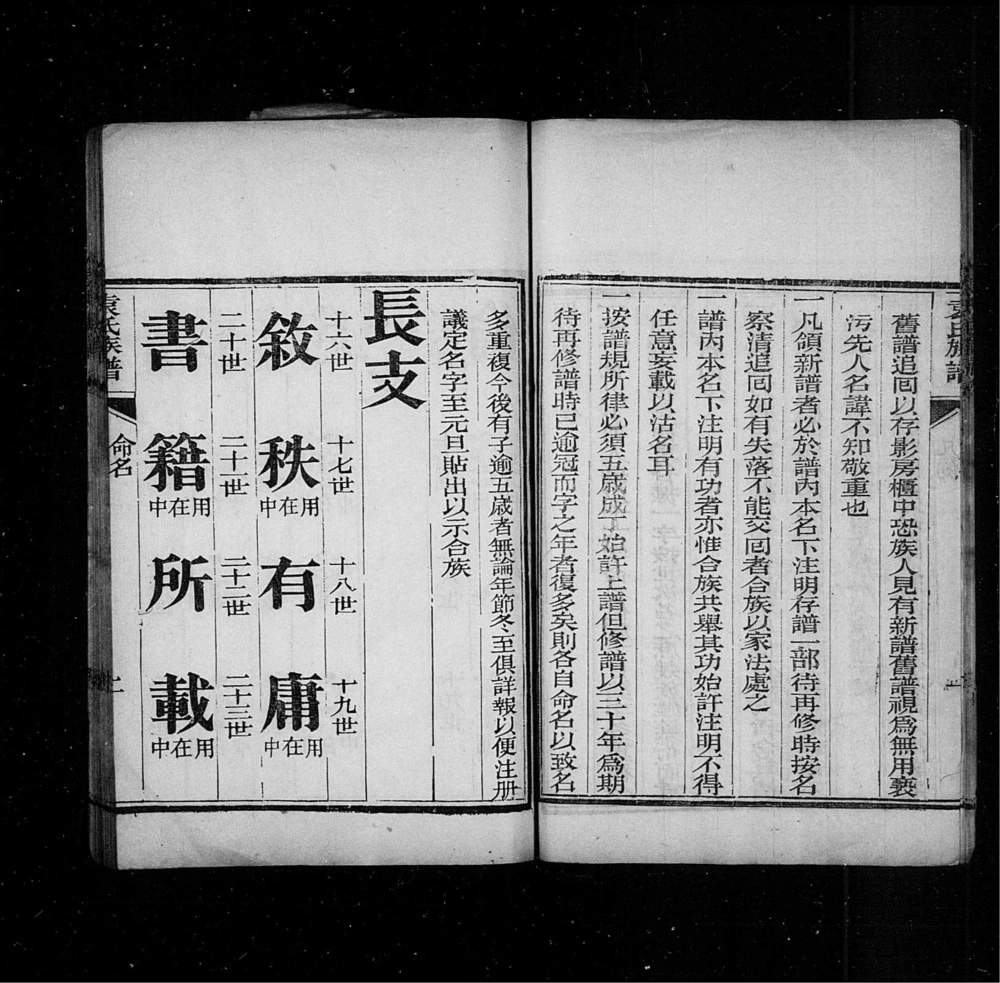 袁氏族譜
舊譜追囘以存影房櫃中恐族人見有新譜舊譜視爲無用褻
污先人名諱不知敬重也
一凡領新譜者必於譜內本名下注明存譜一部待再修時按名
察清追囘如有失落不能交囘者合族以家法處之
一譜內本名下注明有功者亦惟合族共舉其功始許注明不得
任意妄載以沽名耳
一按譜規所律必須五歲成丁始許上譜但修譜以三十年爲期
待再修譜時已逾冠而字之年者復多矣則各自命名以致名
多重複今後有子逾五歲者無論年節冬至俱詳報以便注册
議定名字至元旦貼出以示合族
長支
十六世 十七世 十八世 十九世
敘 秩用在中 有 庸用在中
二十世 二十一世 二十二世 二十三世
書 籍用在中 所 載用在中
袁氏族譜 命名